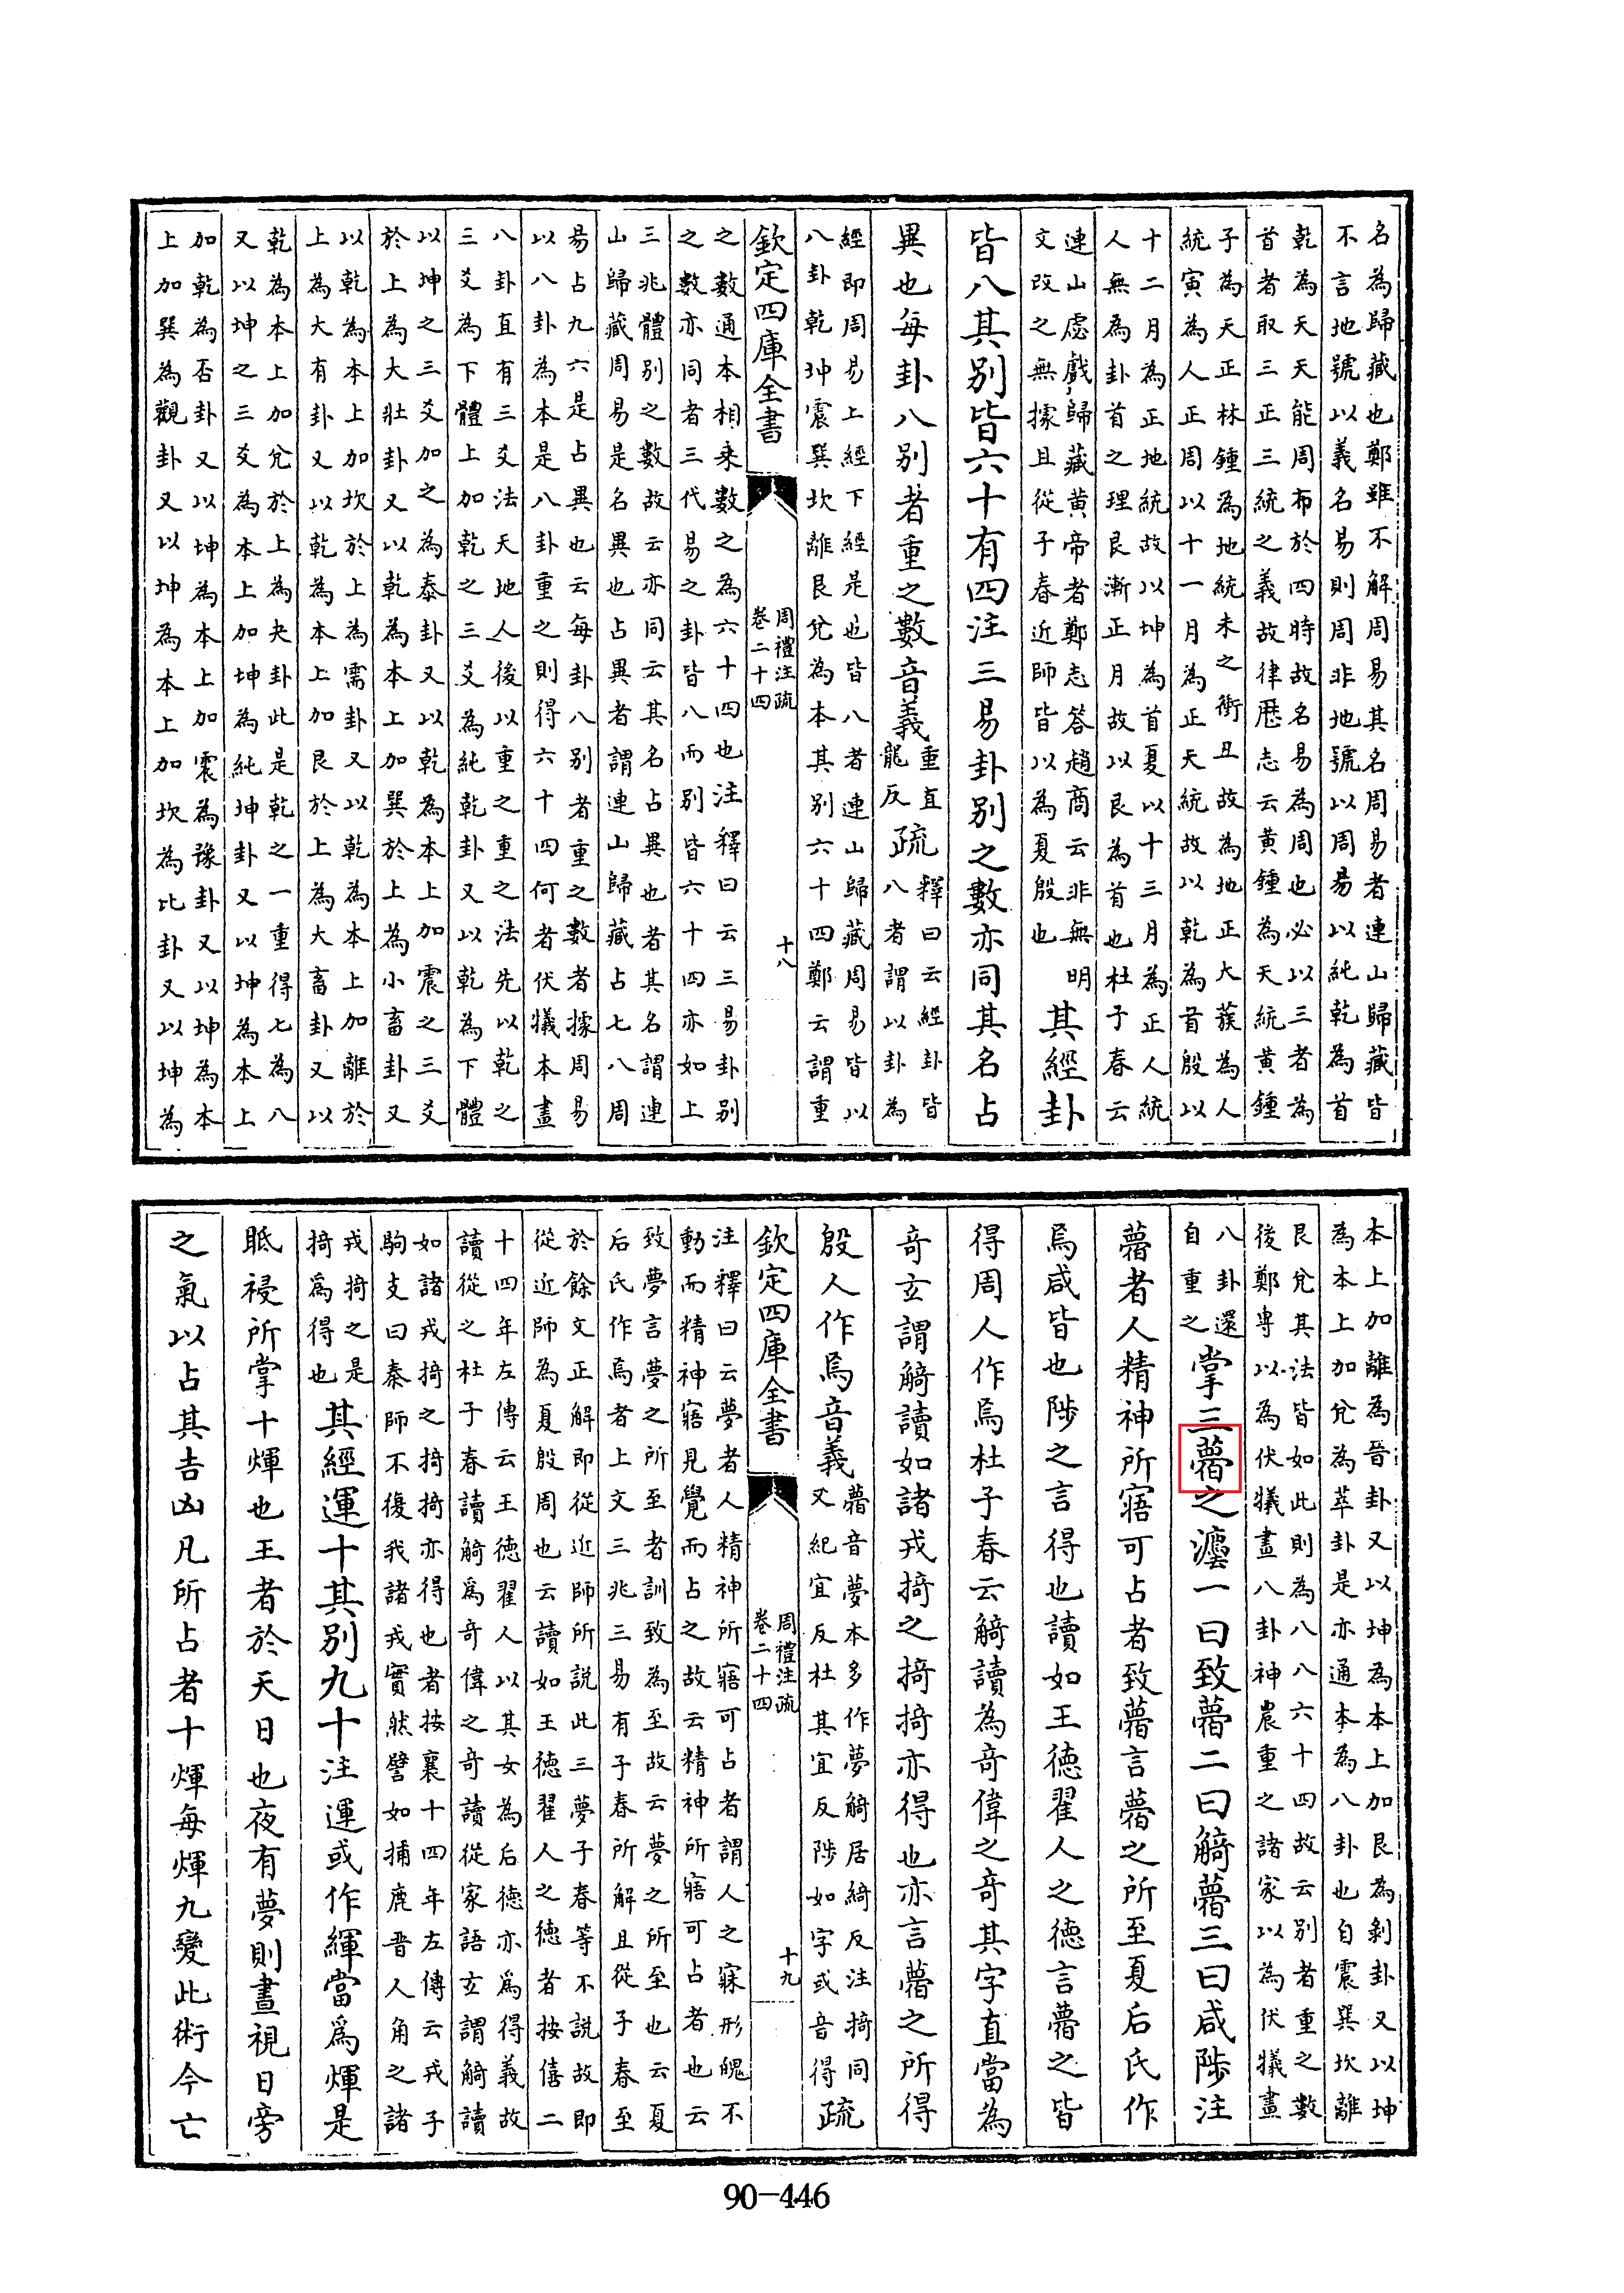 名為歸藏也鄭雖不解周易其名周易者連山歸藏皆
不言地號以義名易則周非地號以周易以純乾為首
乾為天天能周布於四時故名易為周也必以三者為
首者取三正三統之義故律厯志云黄鍾為天統黄鍾
子為天正林鍾為地統未之衝丑故為地正大蔟為人
統寅為人正周以十一月為正天統故以乾為首殷以
十二月為正地統故以坤為首夏以十三月為正人統
人無為卦首之理艮漸正月故以艮為首也杜子春云
連山虙戲歸藏黄帝者鄭志答趙商云非無明
文改之無據且從子春近師皆以為夏殷也
其經卦
皆八其别皆六十有四注三易卦别之數亦同其名占
異也每卦八别者重之數音義
重直
龍反
疏
釋曰云經卦皆
八者謂以卦為
經即周易上經下經是也皆八者連山歸藏周易皆以
八卦乾坤震巽坎離艮兌為本其别六十四鄭云謂重
欽定四庫全書
周禮注疏
卷二十四
十八
之數通本相乘數之為六十四也注釋曰云三易卦别
之數亦同者三代易之卦皆八而别皆六十四亦如上
三兆體别之數故云亦同云其名占異也者其名謂連
山歸藏周易是名異也占異者謂連山歸藏占七八周
易占九六是占異也云每卦八别者重之數者據周易
以八卦為本是八卦重之則得六十四何者伏犧本畫
八卦直有三爻法天地人後以重之重之法先以乾之
三爻為下體上加乾之三爻為純乾卦又以乾為下體
以坤之三爻加之為泰卦又以乾為本上加震之三爻
於上為大壯卦又以乾為本上加巽於上為小畜卦又
以乾為本上加坎於上為需卦又以乾為本上加離於
上為大有卦又以乾為本上加艮於上為大畜卦又以
乾為本上加兌於上為夬卦此是乾之一重得七為八
又以坤之三爻為本上加坤為純坤卦又以坤為本上
加乾為否卦又以坤為本上加震為豫卦又以坤為本
上加巽為觀卦又以坤為本上加坎為比卦又以坤為
本上加離為晉卦又以坤為本上加艮為剝卦又以坤
為本上加兌為萃卦是亦通本為八卦也自震巽坎離
艮兌其法皆如此則為八八六十四故云别者重之數
後鄭專以為伏犧畫八卦神農重之諸家以為伏犧畫
八卦還
自重之
掌三瞢之灋一曰致瞢二曰觭瞢三曰咸陟注
瞢者人精神所寤可占者致瞢言瞢之所至夏后氏作
焉咸皆也陟之言得也讀如王德翟人之德言瞢之皆
得周人作焉杜子春云觭讀為奇偉之奇其字直當為
奇玄謂觭讀如諸戎掎之掎掎亦得也亦言瞢之所得
殷人作焉音義
瞢音夢本多作夢觭居綺反注掎同
又紀宜反杜其宜反陟如字或音得
疏
注釋曰云夢者人精神所寤可占者謂人之寐形魄不
動而精神寤見覺而占之故云精神所寤可占者也云
致夢言夢之所至者訓致為至故云夢之所至也云夏
后氏作焉者上文三兆三易有子春所解且從子春至
於餘文正解即從近師所説此三夢子春等不説故即
從近師為夏殷周也云讀如王德翟人之德者按僖二
十四年左傳云王德翟人以其女為后德亦爲得義故
讀從之杜子春讀觭爲奇偉之奇讀從家語玄謂觭讀
如諸戎掎之掎掎亦得也者按襄十四年左傳云戎子
駒支曰秦師不復我諸戎實然譬如捕鹿晋人角之諸
戎掎之是
掎爲得也
其經運十其别九十注運或作緷當爲煇是
眡祲所掌十煇也王者於天日也夜有夢則晝視日旁
之氣以占其吉凶凡所占者十煇每煇九變此術今亡
欽定四庫全書
周禮注疏
卷二十四
十九
90-446